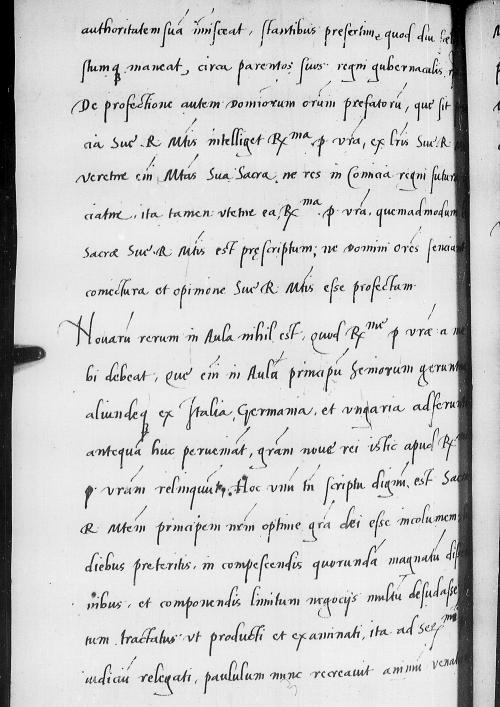 authoritatem suā imisceat, stantibus presertim, quod diu
stumq maneat, circa parentos suos regni gubernaculis,
De profectione autem dominorum orūm prefatorū, que sit
cia Sue R Mtis intelliget Rma p vra, ex lris Sue R
veretne eīn Mtas Sua Sacra ne res in Comicia regni futura
ciatne, ita tamen vtetne ea Rma p vra, quemadmodum
Sacræ Sue R Mtis est pręscriptum; ne domini ores senciant
coniectura et opinione Sue R Mtis esse profectam
Nouarū rerum in Aula nihil est, quod Rme p vræ a me
bi debeat, Que eīn in Aulā principū seniorum gerunt
aliundeq ex Italia, Germania, et vngaria adferunt
antequā huc perueniāt, grām noue rei istic apud R
p vrām relinquūt. Hoc vnū tn scriptu dignū est Sacr
R Mtem principem nrm optime grā dei esse incolumem,
diebus preteritis, in compescendis quorundā magnatū
nibus, et componendis limitum negocijs multū desudasse
tum tractatus vt producti et examinati, ita ad
iudiciū relegati, paululum nunc recreauit animū